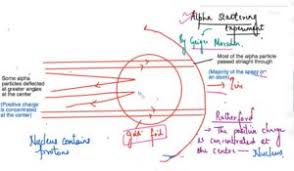 Alpha Scattering
Experiment
By Geiger Marsden
Most of the alpha particle
passed straight through
(Majority of the space in
an atom)
Some alpha
particles deflected
at greater angles
at the center
(Positive charge
is concentrated at
the center)
gold foil
Nucleus contains
protons
Rutherford
The positive charge
is concentrated at
the center
Nucleus